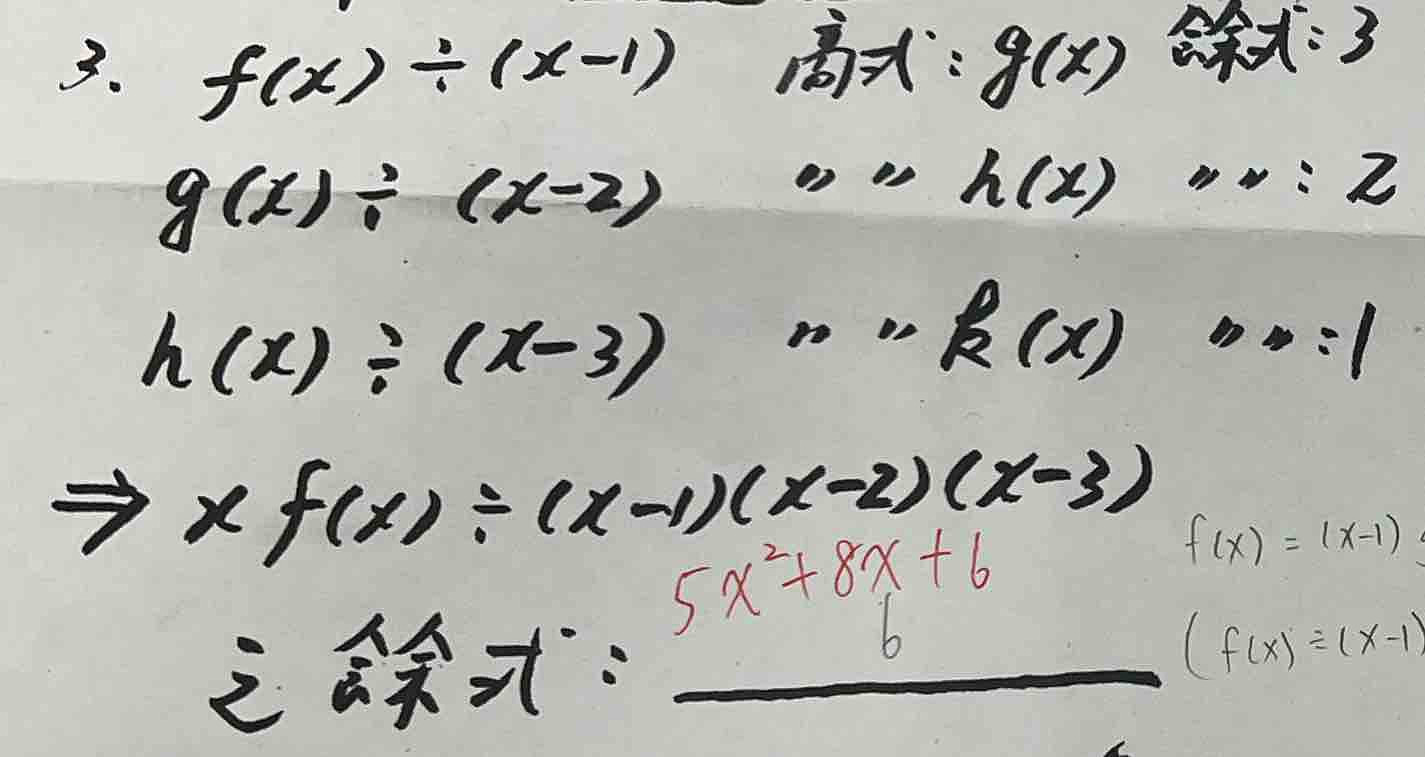 3. f(x) ÷ (x-1) 商式: g(x) 餘式: 3
g(x) ÷ (x-2) 〃 〃 h(x) 〃〃: 2
h(x) ÷ (x-3) 〃 〃 k(x) 〃〃: 1
⇒ x f(x) ÷ (x-1)(x-2)(x-3)
5x²+8x+6
f(x) = (x-1)
之餘式: 6
(f(x) ÷ (x-1)